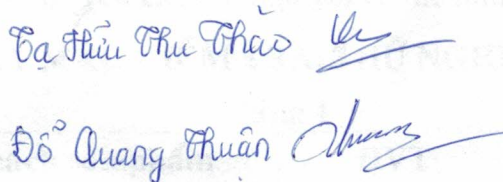 Tạ Hữu Thu Thảo
Đỗ Quang Thuân